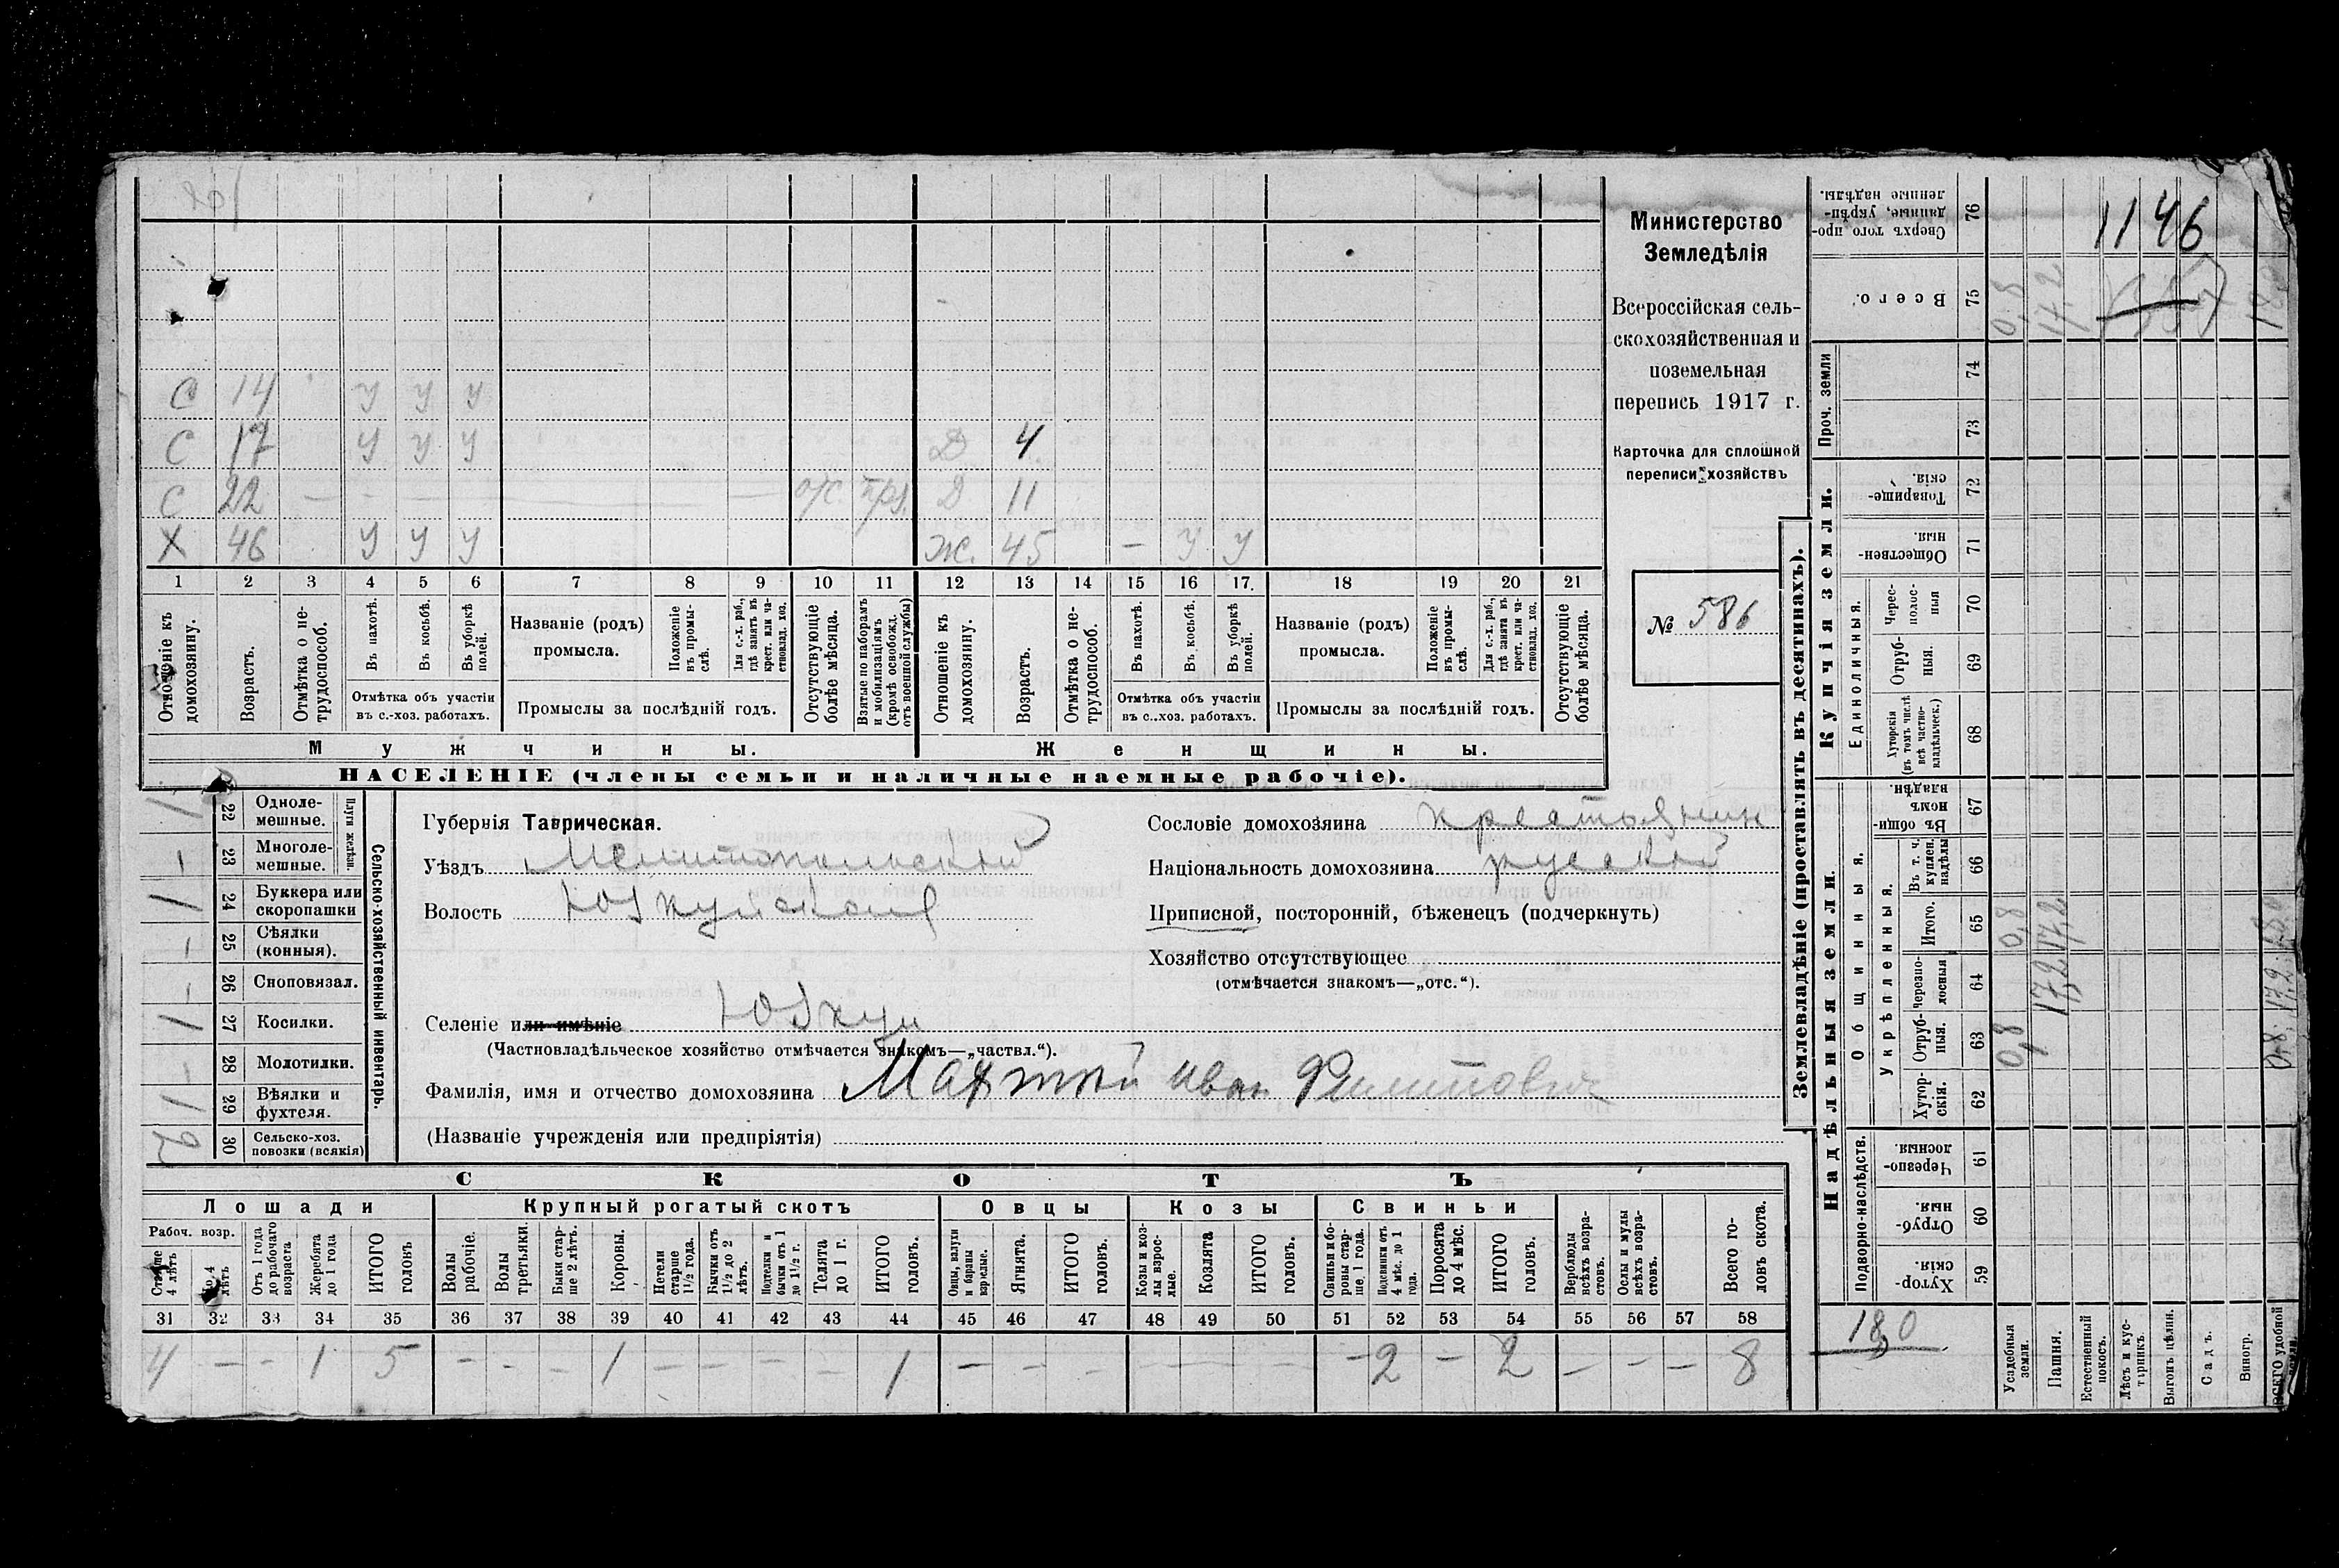 1146
Министерство
Земледѣлія
Всероссійская сель-
скохозяйственная и
поземельная
перепись 1917 г.
Карточка для сплошной
переписи хозяйствъ
№ 586
С 14 У У У
С 17 У У У Д 4
С 22 — — — о/с Д 11
Х 46 У У У Ж. 45 — У У
1 2 3 4 5 6 7 8 9 10 11 12 13 14 15 16 17. 18 19 20 21
Отношеніе къ домохозяину.
Возрастъ.
Отмѣтка о не-трудоспособ.
Въ пахотѣ.
Въ косьбѣ.
Въ уборкѣ полей.
Отмѣтка объ участіи
въ с.-хоз. работахъ.
Названіе (родъ)
промысла.
Положеніе въ промы-слѣ.
Для с.-х. раб., гдѣ занятъ въ крест. или ча-ствовлад. хоз.
Промыслы за послѣдній годъ.
Отсутствующіе болѣе мѣсяца.
Взятые по наборамъ и мобилизаціямъ (кромѣ освобожд. отъ военной службы)
Отношеніе къ домохозяину.
Возрастъ.
Отмѣтка о не-трудоспособ.
Въ пахотѣ.
Въ косьбѣ.
Въ уборкѣ полей.
Отмѣтка объ участіи
въ с..хоз. работахъ.
Названіе (родъ)
промысла.
Положеніе въ промы-слѣ.
Для с.-х. раб., гдѣ занята въ крест. или ча-ствовлад. хоз.
Промыслы за послѣдній годъ.
Отсутствующіе болѣе мѣсяца.
Мужчины.
Женщины.
НАСЕЛЕНІЕ (члены семьи и наличные наемные рабочіе).
Сельско-хозяйственный инвентарь.
Плуги желѣзн.
1 22 Одноле-мешные.
– 23 Многоле-мешные.
1 24 Буккера или скоропашки
– 25 Сѣялки (конныя).
– 26 Сноповязал.
1 27 Косилки.
– 28 Молотилки.
1 29 Вѣялки и фухтеля.
2 30 Сельско-хоз. повозки (всякія)
Губернія Таврическая.
Уѣздъ Мелитопольский
Волость Юзкуйская
Селеніе или имѣніе Юзкуи
(Частновладѣльческое хозяйство отмѣчается знакомъ—„частвл.“).
Фамилія, имя и отчество домохозяина Иван Филиппович
(Названіе учрежденія или предпріятія)
Сословіе домохозяина крестьянин
Національность домохозяина русский
Приписной, посторонній, бѣженецъ (подчеркнуть)
Хозяйство отсутствующее
(отмѣчается знакомъ—„отс.“).
СКОТЪ
Лошади
Крупный рогатый скотъ
Овцы
Козы
Свиньи
Рабоч. возр.
Старше 4 лѣтъ
До 4 лѣтъ
Отъ 1 года до рабочаго возраста
Жеребята до 1 года
ИТОГО головъ
Волы рабочіе.
Волы третьяки.
Быки стар-ше 2 лѣтъ.
Коровы.
Нетели старше 1½ года.
Бычки отъ 1½ до 2 лѣтъ.
Подтелки и бычки отъ 1 до 1½ г.
Телята до 1 г.
ИТОГО головъ.
Овцы, валухи и бараны взрослые.
Ягнята.
ИТОГО головъ.
Козы и коз-лы взрос-лые.
Козлята
ИТОГО головъ.
Свиньи и бо-ровы стар-ше, 1 года.
Подсвинки отъ 4 мѣс. до 1 года.
Поросята до 4 мѣс.
ИТОГО головъ.
Верблюды всѣхъ возра-стовъ.
Ослы и мулы всѣхъ возра-стовъ.
Всего го-ловъ скота.
31 32 33 34 35 36 37 38 39 40 41 42 43 44 45 46 47 48 49 50 51 52 53 54 55 56 57 58
4 – – 1 5 – – – 1 – – – – 1 – – – – – – – 2 – 2 – – – 8
Землевладѣніе (проставлять въ десятинахъ).
Сверхъ того про-данные, укрѣп-ленные надѣлы. 76
Всего. 75 0,8 17,2
Проч. земли 74
73
Купчія земли.
Товарище-скія. 72
Обществен-ныя. 71
Единоличныя.
Черес-полос-ныя 70
Отруб-ныя. 69
Хуторскія (въ томъ числѣ всѣ частно-владѣльческ.) 68
Надѣльныя земли.
Общинныя.
Въ общи-номъ владѣн. 67
Укрѣпленныя.
Въ т. ч. куплен. надѣлы 66
Итого. 65 0,8 17,2
Черезпо-лосныя 64 17,2
Отруб-ныя. 63 0,8
Хутор-скія. 62
Подворно-наслѣдств.
Черезпо-лосныя. 61
Отруб-ныя. 60
Хутор-скія. 59
18,0
Усадебныя земли.
Пашня.
Естественный покосъ.
Лѣсъ и кус-тарникъ.
Выгонъ цѣлин.
Садъ.
Виногр.
ВСЕГО удобной земли.